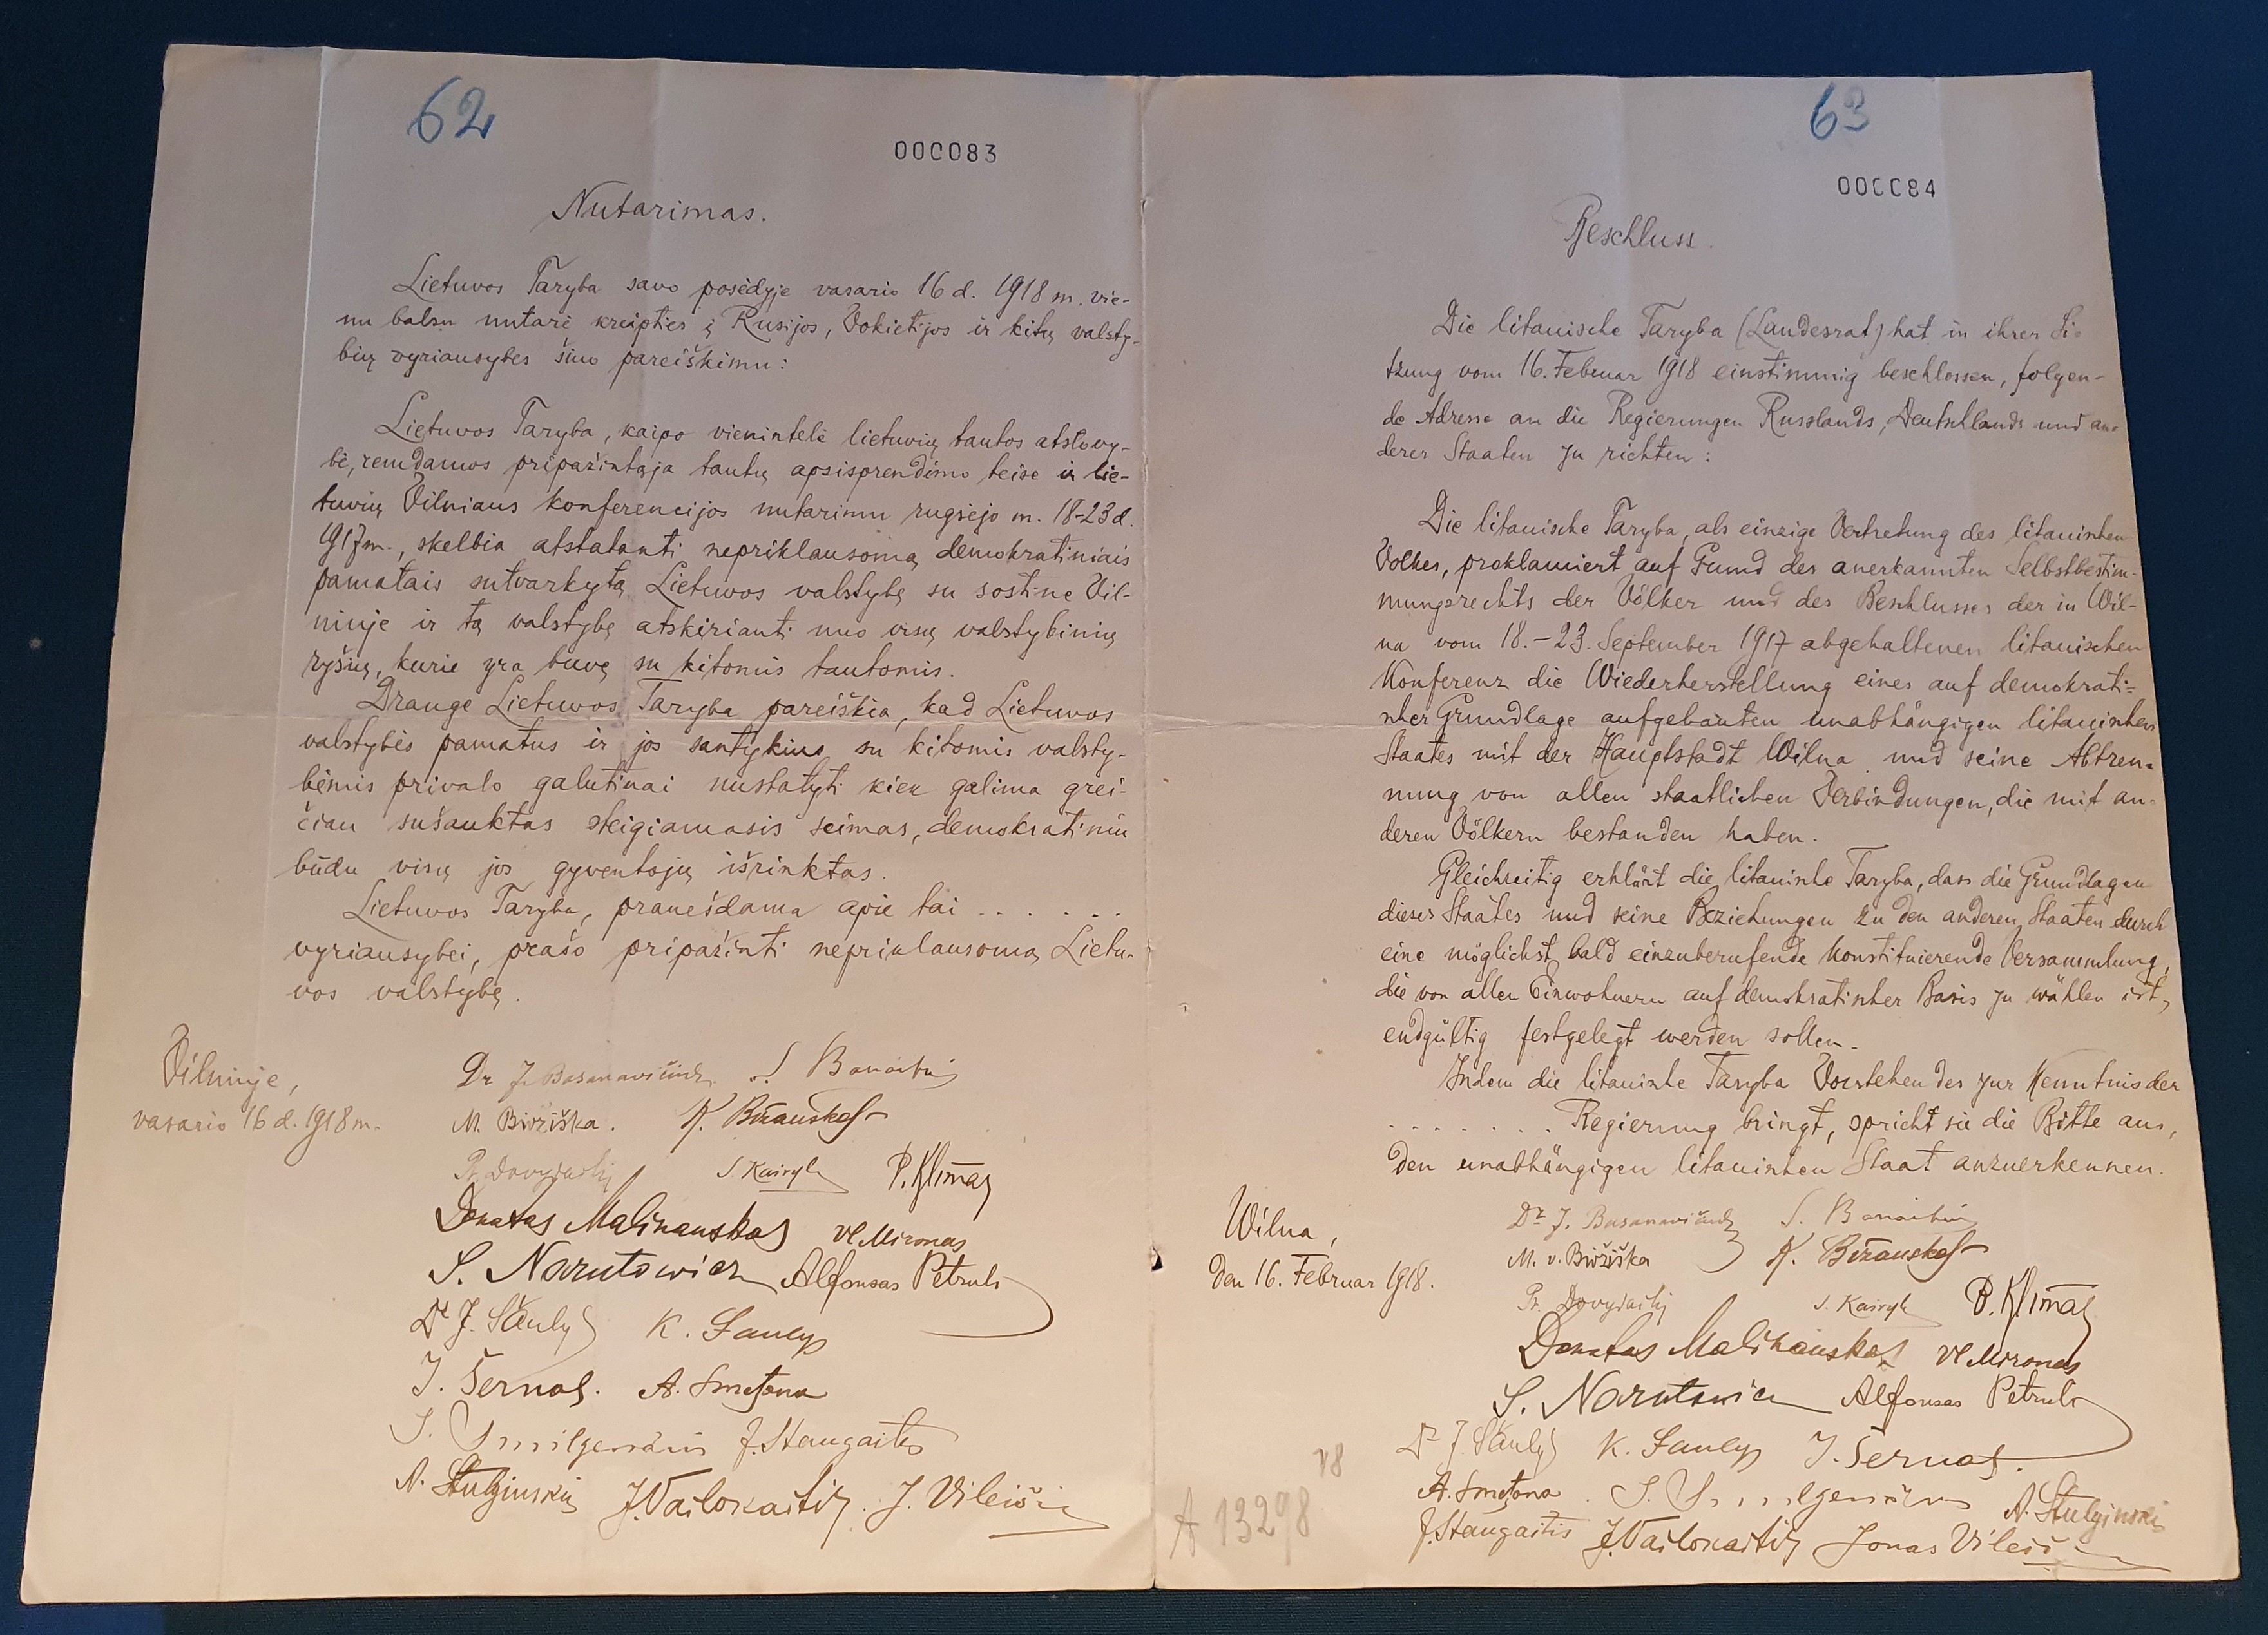 62
000083
Nutarimas.
Lietuvos Taryba savo posėdyje vasario 16 d. 1918 m. vie-
nu balsu nutarė kreipties į Rusijos, Vokietijos ir kitų valsty-
bių vyriausybes šiuo pareiškimu:
Lietuvos Taryba, kaipo vienintelė lietuvių tautos atstovy-
bė, remdamos pripažintąja tautų apsisprendimo teise ir lie-
tuvių Vilniaus konferencijos nutarimu rugsėjo m. 18-23 d.
1917 m., skelbia atstatanti nepriklausomą, demokratiniais
pamatais sutvarkytą Lietuvos valstybę su sostine Vil-
niuje ir tą valstybę atskirianti nuo visų valstybinių
ryšių, kurie yra buvę su kitomis tautomis.
Drauge Lietuvos Taryba pareiškia, kad Lietuvos
valstybės pamatus ir jos santykius su kitomis valsty-
bėmis privalo galutinai nustatyti kiek galima grei-
čiau sušauktas steigiamasis seimas, demokratiniu
būdu visų jos gyventojų išrinktas.
Lietuvos Taryba, pranešdama apie tai . . . . . .
vyriausybei, prašo pripažinti nepriklausomą Lietu-
vos valstybę.
Vilniuje,
vasario 16 d. 1918 m.
Dr J. Basanavičius S. Banaitis
M. Biržiška. K. Bizauskas
Pr. Dovydaitis S. Kairys P. Klimas
Donatas Malinauskas Vl Mironas
S. Narutowicz Alfonsas Petrulis
Dr J. Šaulys K. Šaulys
J. Šernas. A. Smetona
J. Smilgevičius J. Staugaitis
A. Stulginskis J. Vailokaitis. J. Vileišis
63
000084
Beschluss.
Die litauische Taryba (Landesrat) hat in ihrer Si-
tzung vom 16. Februar 1918 einstimmig beschlossen, folgen-
de Adresse an die Regierungen Russlands, Deutschlands und an-
derer Staaten zu richten:
Die litauische Taryba, als einzige Vertretung des litauischen
Volkes, proklamiert auf Grund des anerkannten Selbstbestim-
mungsrechts der Völker und des Beschlusses der in Wil-
na vom 18.-23. September 1917 abgehaltenen litauischen
Konferenz die Wiederherstellung eines auf demokrati-
scher Grundlage aufgebauten unabhängigen litauischen
Staates mit der Hauptstadt Wilna und seine Abtren-
nung von allen staatlichen Verbindungen, die mit an-
deren Völkern bestanden haben.
Gleichzeitig erklärt die litauische Taryba, dass die Grundlagen
dieses Staates und seine Beziehungen zu den anderen Staaten durch
eine möglichst bald einzuberufende Konstituierende Versammlung,
die von allen Einwohnern auf demokratischer Basis zu wählen ist,
endgültig festgelegt werden sollen.
Indem die litauische Taryba Vorstehendes zur Kenntnis der
. . . . . . . Regierung bringt, spricht sie die Bitte aus,
den unabhängigen litauischen Staat anzuerkennen.
Wilna,
den 16. Februar 1918.
Dr J. Basanavičius S. Banaitis
M. v. Biržiška K. Bizauskas
Pr. Dovydaitis S. Kairys P. Klimas
Donatas Malinauskas Vl Mironas
S. Narutowicz Alfonsas Petrulis
Dr J. Šaulys K. Šaulys J. Šernas.
A. Smetona J. Smilgevičius A. Stulginskis
J. Staugaitis J. Vailokaitis Jonas Vileišis
18
A 13298